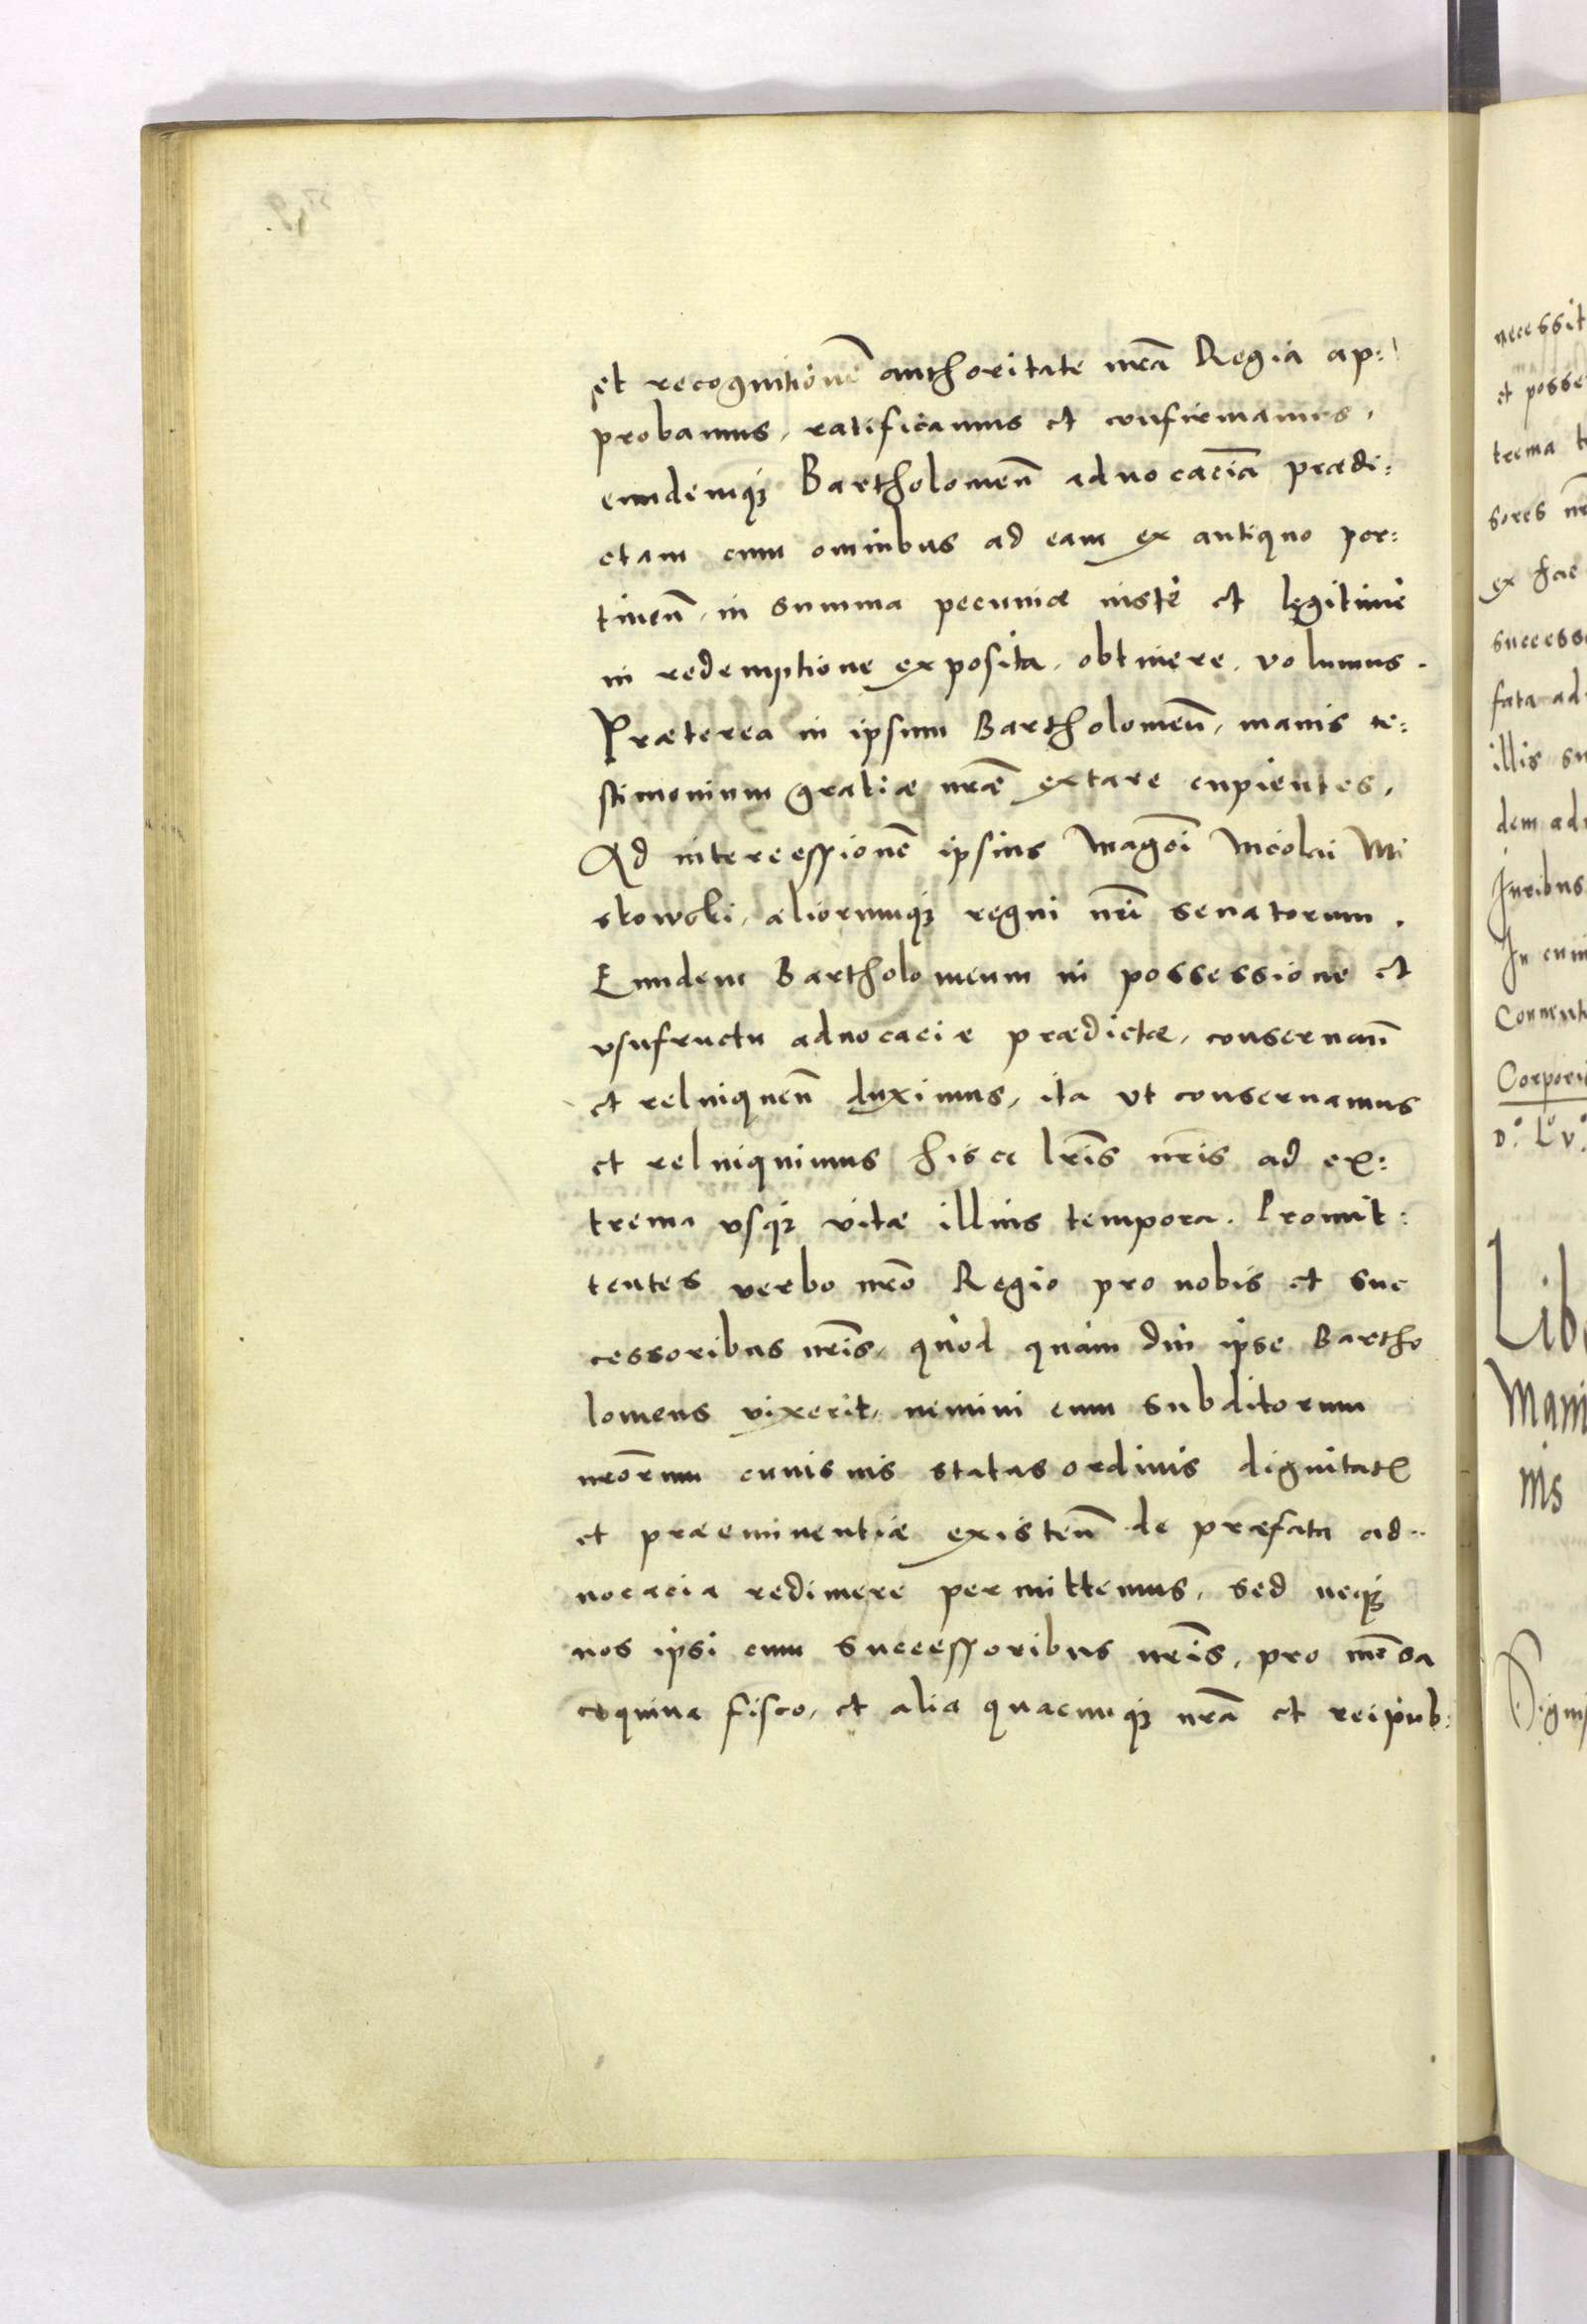 et recognitionē authoritate nrā Regia ap:
probamus, ratificamus et confirmamus,
eundemqȝ Bartholomeū aduocaciā prædi:
ctam cum omnibus ad eam ex antiquo per:
tineñ, in summa pecuniæ iustè et legitimè
in redemptione exposita, obtinere, volumus.
Præterea in ipsum Bartholomeū, maius te:
stimonium gratiæ nrāe extare cupientes,
Ad intercessionē ipsius Magci Nicolai Mi
skowski, aliorumqȝ regni nrī senatorum,
Eundem Bartholomeum in possessione et
vsufructu aduocaciæ prædictæ, conseruañ
et relinqueñ duximus, ita vt conseruamus
et relinquimus hisce lrīs nrīs ad ex:
trema vsqȝ vitæ illius tempora. Promit:
tentes verbo nrō Regio pro nobis et suc
cessoribus nrīs, quod quam diu ipse Bartho
lomeus vixerit, nemini eum subditorum
nrōrum cuiusuis status ordinis dignitatis
et præeminentiæ existeñ de præfata ad:
uocacia redimere permittemus, sed neqȝ
nos ipsi cum successoribus nrīs, pro mēsa
coquina fisco, et alia quacumqȝ nrā et reipub:
necessit
et posse
trema
sores
ex
success
fata ad
illis su
dem ad
Juribus
In cuiu
Conuent
Corporis
Lib